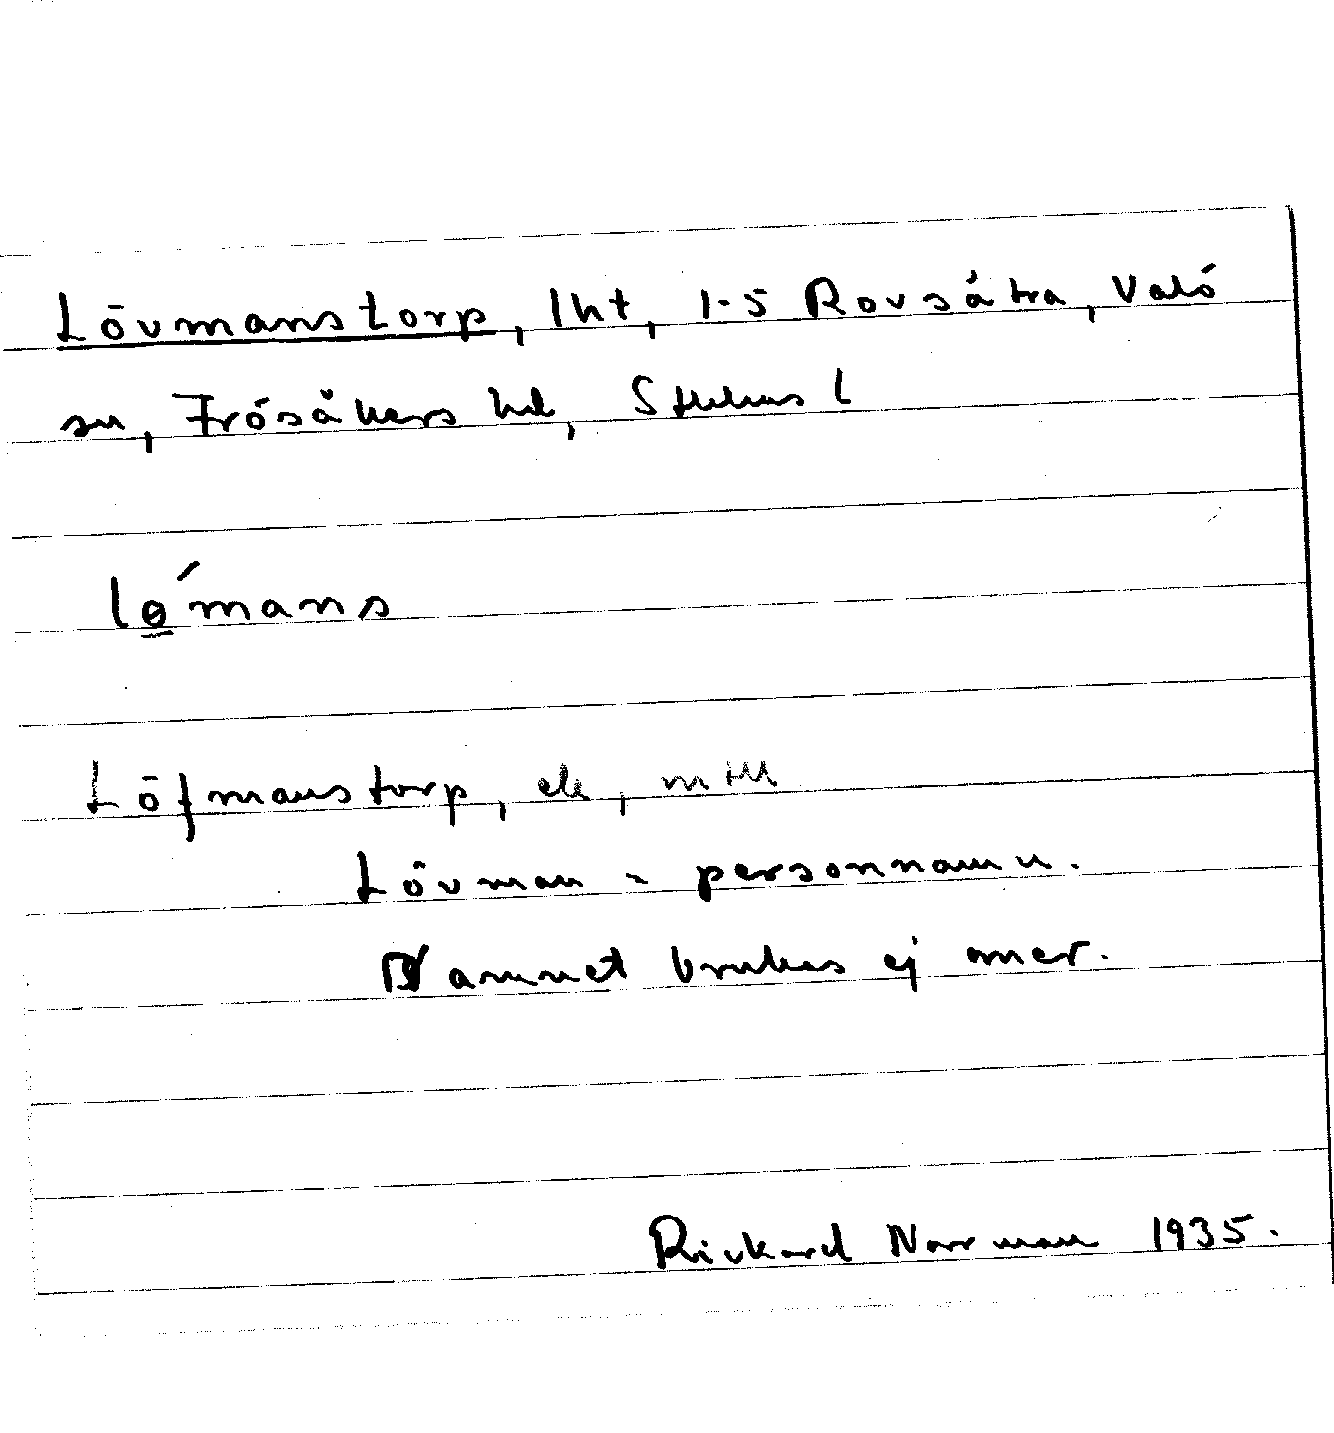 Lövmanstorp, lht, 1-5 Rovsätra, Valö
sn, Frösåkers hd, Sthlms l
lø̱´mans
Löfmanstorp, ek,
Lövman - personnamn.
Namnet brukas ej mer.
Rickard Norrman 1935.